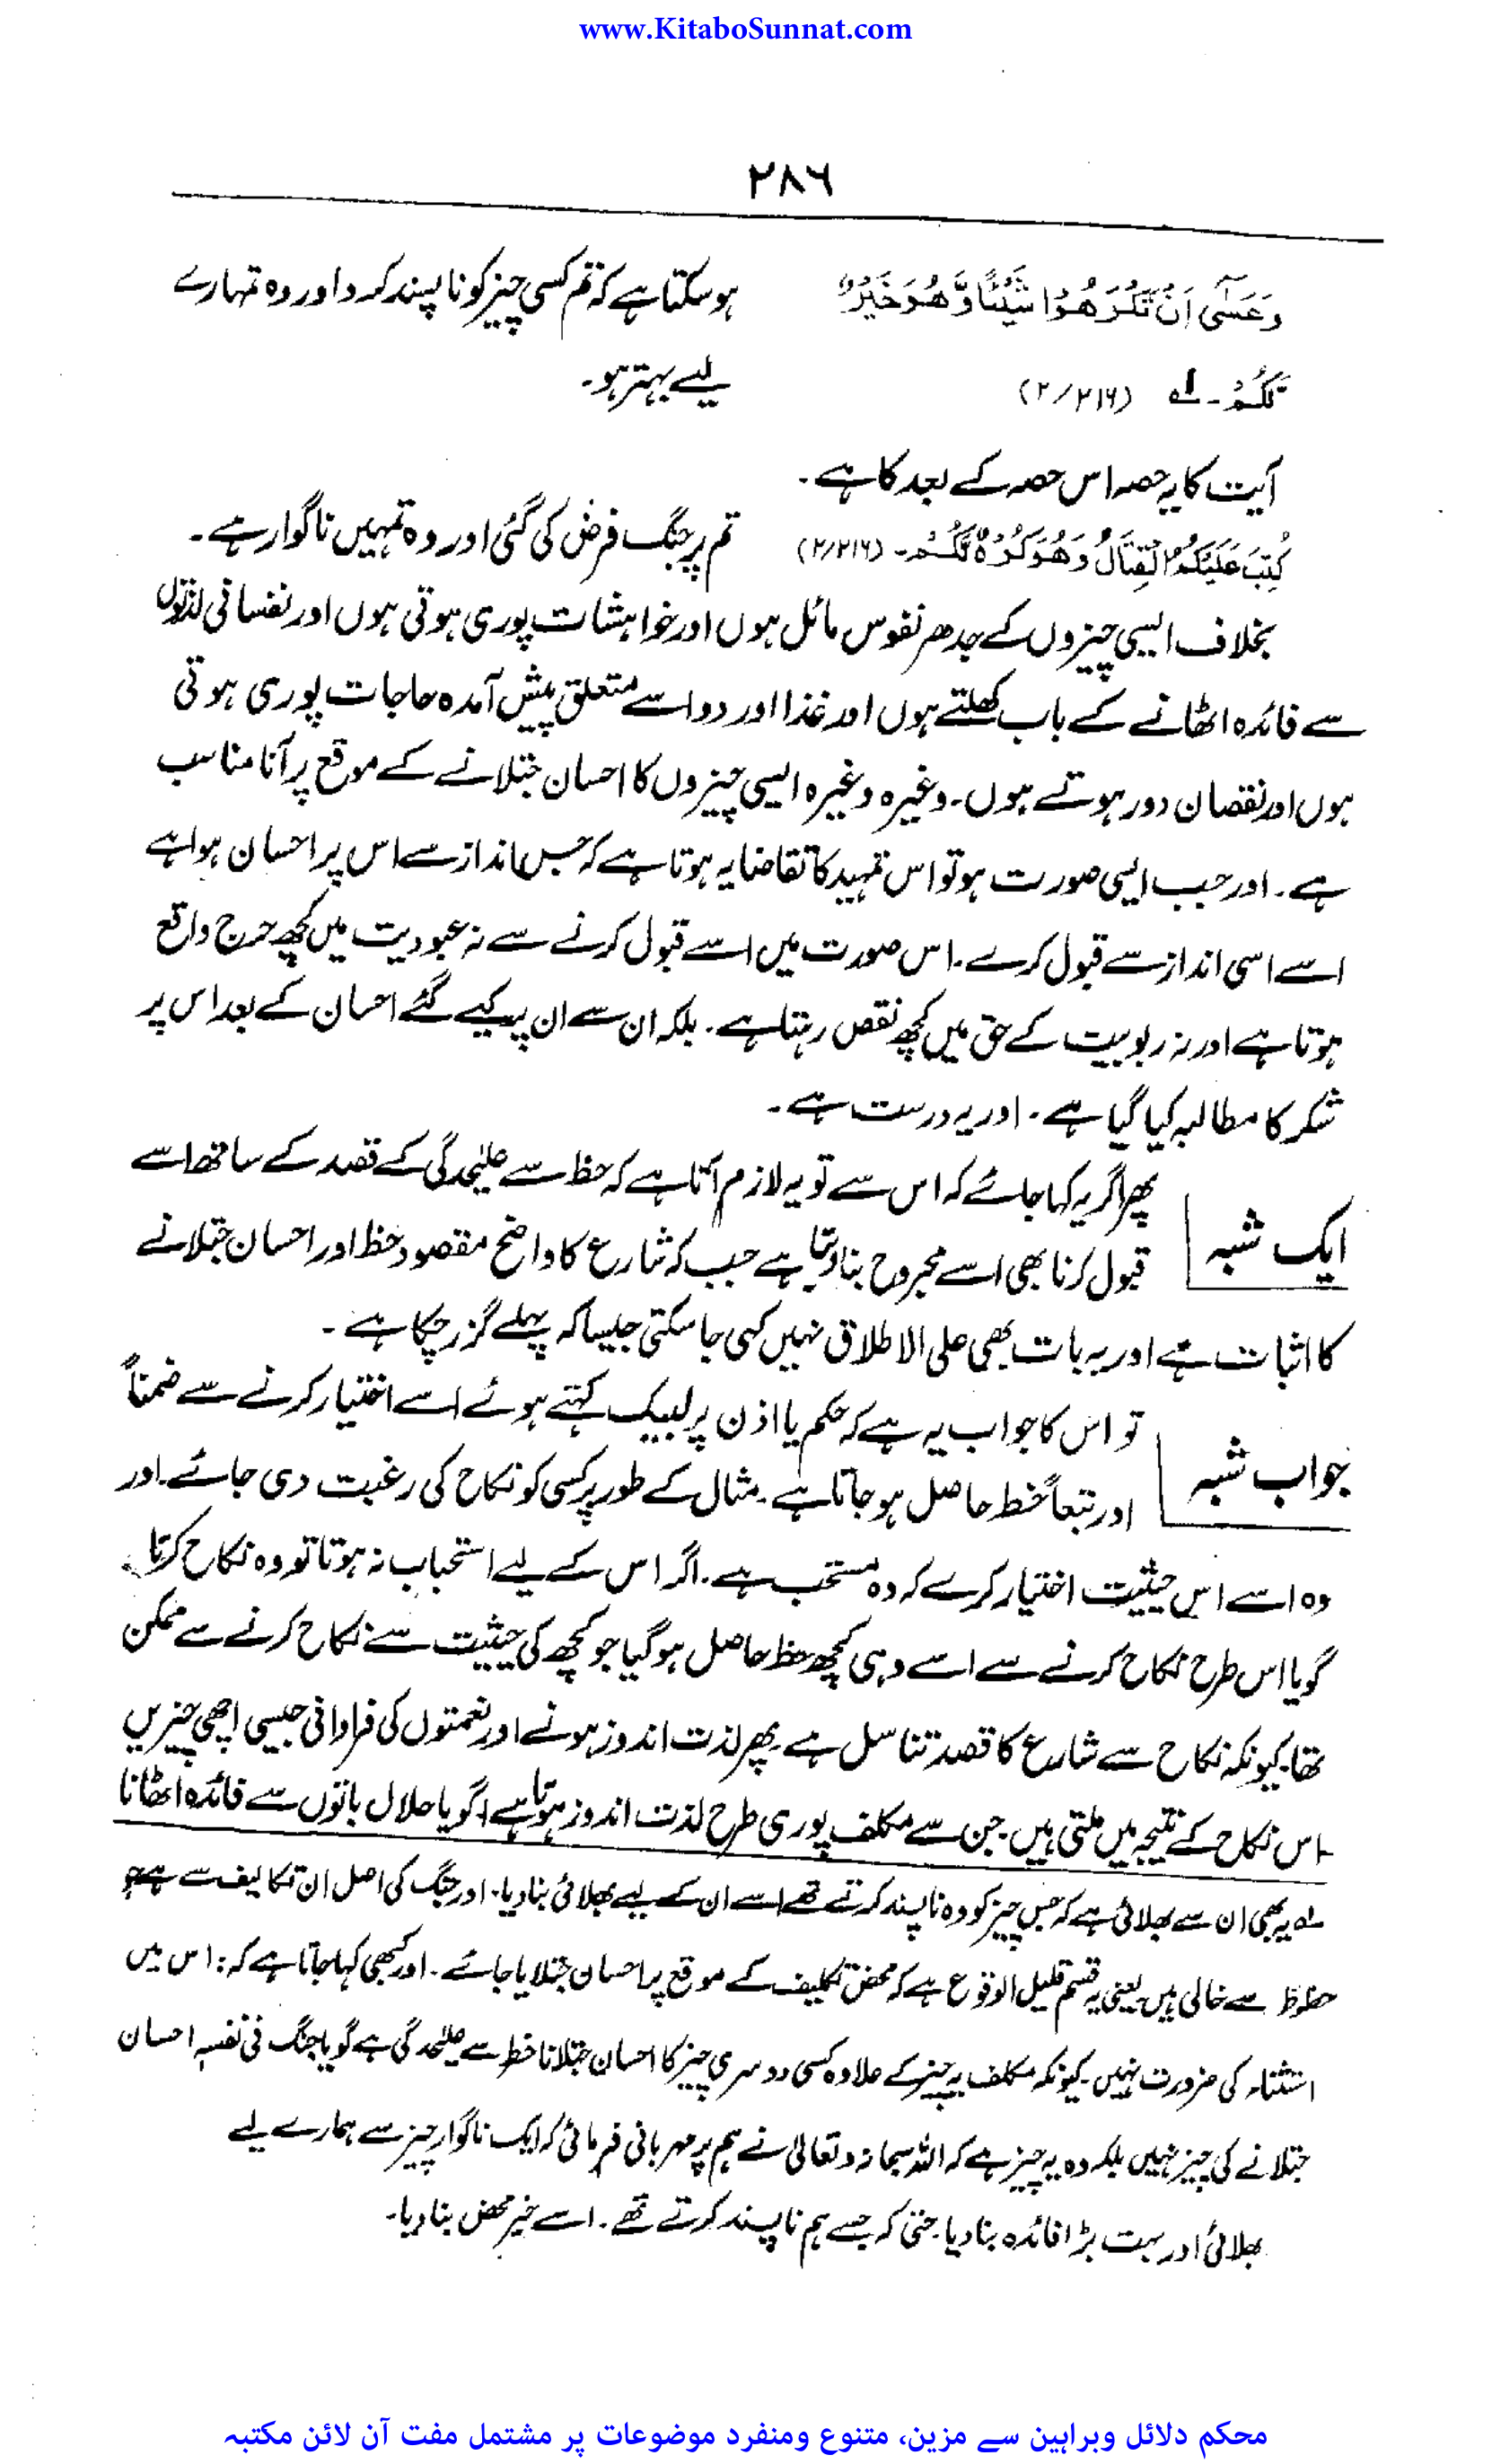 www.KitaboSunnat.com
۲۸۶
وَعَسٰۤی اَنْ تَكْرَهُوْا شَیْـًٔا وَّهُوَ خَیْرٌ ہو سکتا ہے کہ تم کسی چیز کو ناپسند کرو اور وہ تمہارے
لَّكُمْ۔ لہ (۲/۲۱۶) لیے بہتر ہو۔
آیت کا یہ حصہ اس حصہ کے بعد کا ہے۔
كُتِبَ عَلَیْكُمُ الْقِتَالُ وَهُوَ كُرْهٌ لَّكُمْ۔ (۲/۲۱۶) تم پر جنگ فرض کی گئی اور وہ تمہیں ناگوار ہے۔
بخلاف ایسی چیزوں کے جدھر نفوس مائل ہوں اور خواہشات پوری ہوتی ہوں اور نفسانی لذتوں
سے فائدہ اٹھانے کے باب کھلتے ہوں اور غذا اور دوا سے متعلق پیش آمدہ حاجات پوری ہوتی
ہوں اور نقصان دور ہوتے ہوں۔ وغیرہ وغیرہ ایسی چیزوں کا احسان جتلانے کے موقع پر آنا مناسب
ہے۔ اور جب ایسی صورت ہو تو اس تمہید کا تقاضا یہ ہوتا ہے کہ جس انداز سے اس پر احسان ہوا ہے
اسے اسی انداز سے قبول کرے۔ اس صورت میں اسے قبول کرنے سے نہ عبودیت میں کچھ حرج واقع
ہوتا ہے اور نہ ربوبیت کے حق میں کچھ نقص رہتا ہے۔ بلکہ ان سے ان پہ کیے گئے احسان کے بعد اس پر
شکر کا مطالبہ کیا گیا ہے۔ اور یہ درست ہے۔
ایک شبہ پھر اگر یہ کہا جائے کہ اس سے تو یہ لازم آتا ہے کہ حظ سے علیٰحدگی کے قصد کے ساتھ اسے
قبول کرنا بھی اسے مجروح بنا دیتا ہے جب کہ شارع کا واضح مقصود حظ اور احسان جتلانے
کا اثبات ہے اور یہ بات بھی علی الاطلاق نہیں کہی جا سکتی جیسا کہ پہلے گزر چکا ہے۔
جواب شبہ تو اس کا جواب یہ ہے کہ حکم یا اذن پر لبیک کہتے ہوئے اسے اختیار کرنے سے ضمناً
اور تبعاً خط حاصل ہو جاتا ہے۔ مثال کے طور پر کسی کو نکاح کی رغبت دی جائے۔ اور
وہ اسے اس حیثیت اختیار کرے کہ وہ مستحب ہے۔ اگر اس کے لیے استحباب نہ ہوتا تو وہ نکاح کرتا۔
گویا اس طرح نکاح کرنے سے اسے وہی کچھ حظ حاصل ہو گیا جو کچھ کی حیثیت سے نکاح کرنے سے ممکن
تھا۔ کیونکہ نکاح سے شارع کا قصد تناسل ہے پھر لذت اندوز ہونے اور نعمتوں کی فراوانی جیسی اچھی چیزیں
اس نکاح کے نتیجہ میں ملتی ہیں۔ جن سے مکلف پوری طرح لذت اندوز ہوتا ہے۔ گویا حلال باتوں سے فائدہ اٹھانا
لہ یہ بھی ان سے بھلائی ہے کہ جس چیز کو وہ ناپسند کرتے تھے اسے ان کے لیے بھلائی بنا دیا۔ اور جنگ کی اصل ان تکالیف سے ہے جو
حظوظ سے خالی ہیں یعنی یہ قسم قلیل الوقوع ہے کہ محض تکلیف کے موقع پر احسان جتلایا جائے۔ اور کبھی کہا جاتا ہے کہ: اس میں
استثناء کی ضرورت نہیں۔ کیونکہ مکلف بہ چیز کے علاوہ کسی دوسری چیز کا احسان جتلانا خط سے علٰحدگی ہے گویا جنگ فی نفسہٖ احسان
جتلانے کی چیز نہیں بلکہ وہ یہ چیز ہے کہ اللہ سبحانہ وتعالیٰ نے ہم پر مہربانی فرمائی کہ ایک ناگوار چیز سے ہمارے لیے
بھلائی اور بہت بڑا فائدہ بنا دیا۔ حتیٰ کہ جسے ہم ناپسند کرتے تھے۔ اسے خیر محض بنا دیا۔
محکم دلائل وبراہین سے مزین، متنوع ومنفرد موضوعات پر مشتمل مفت آن لائن مکتبہ